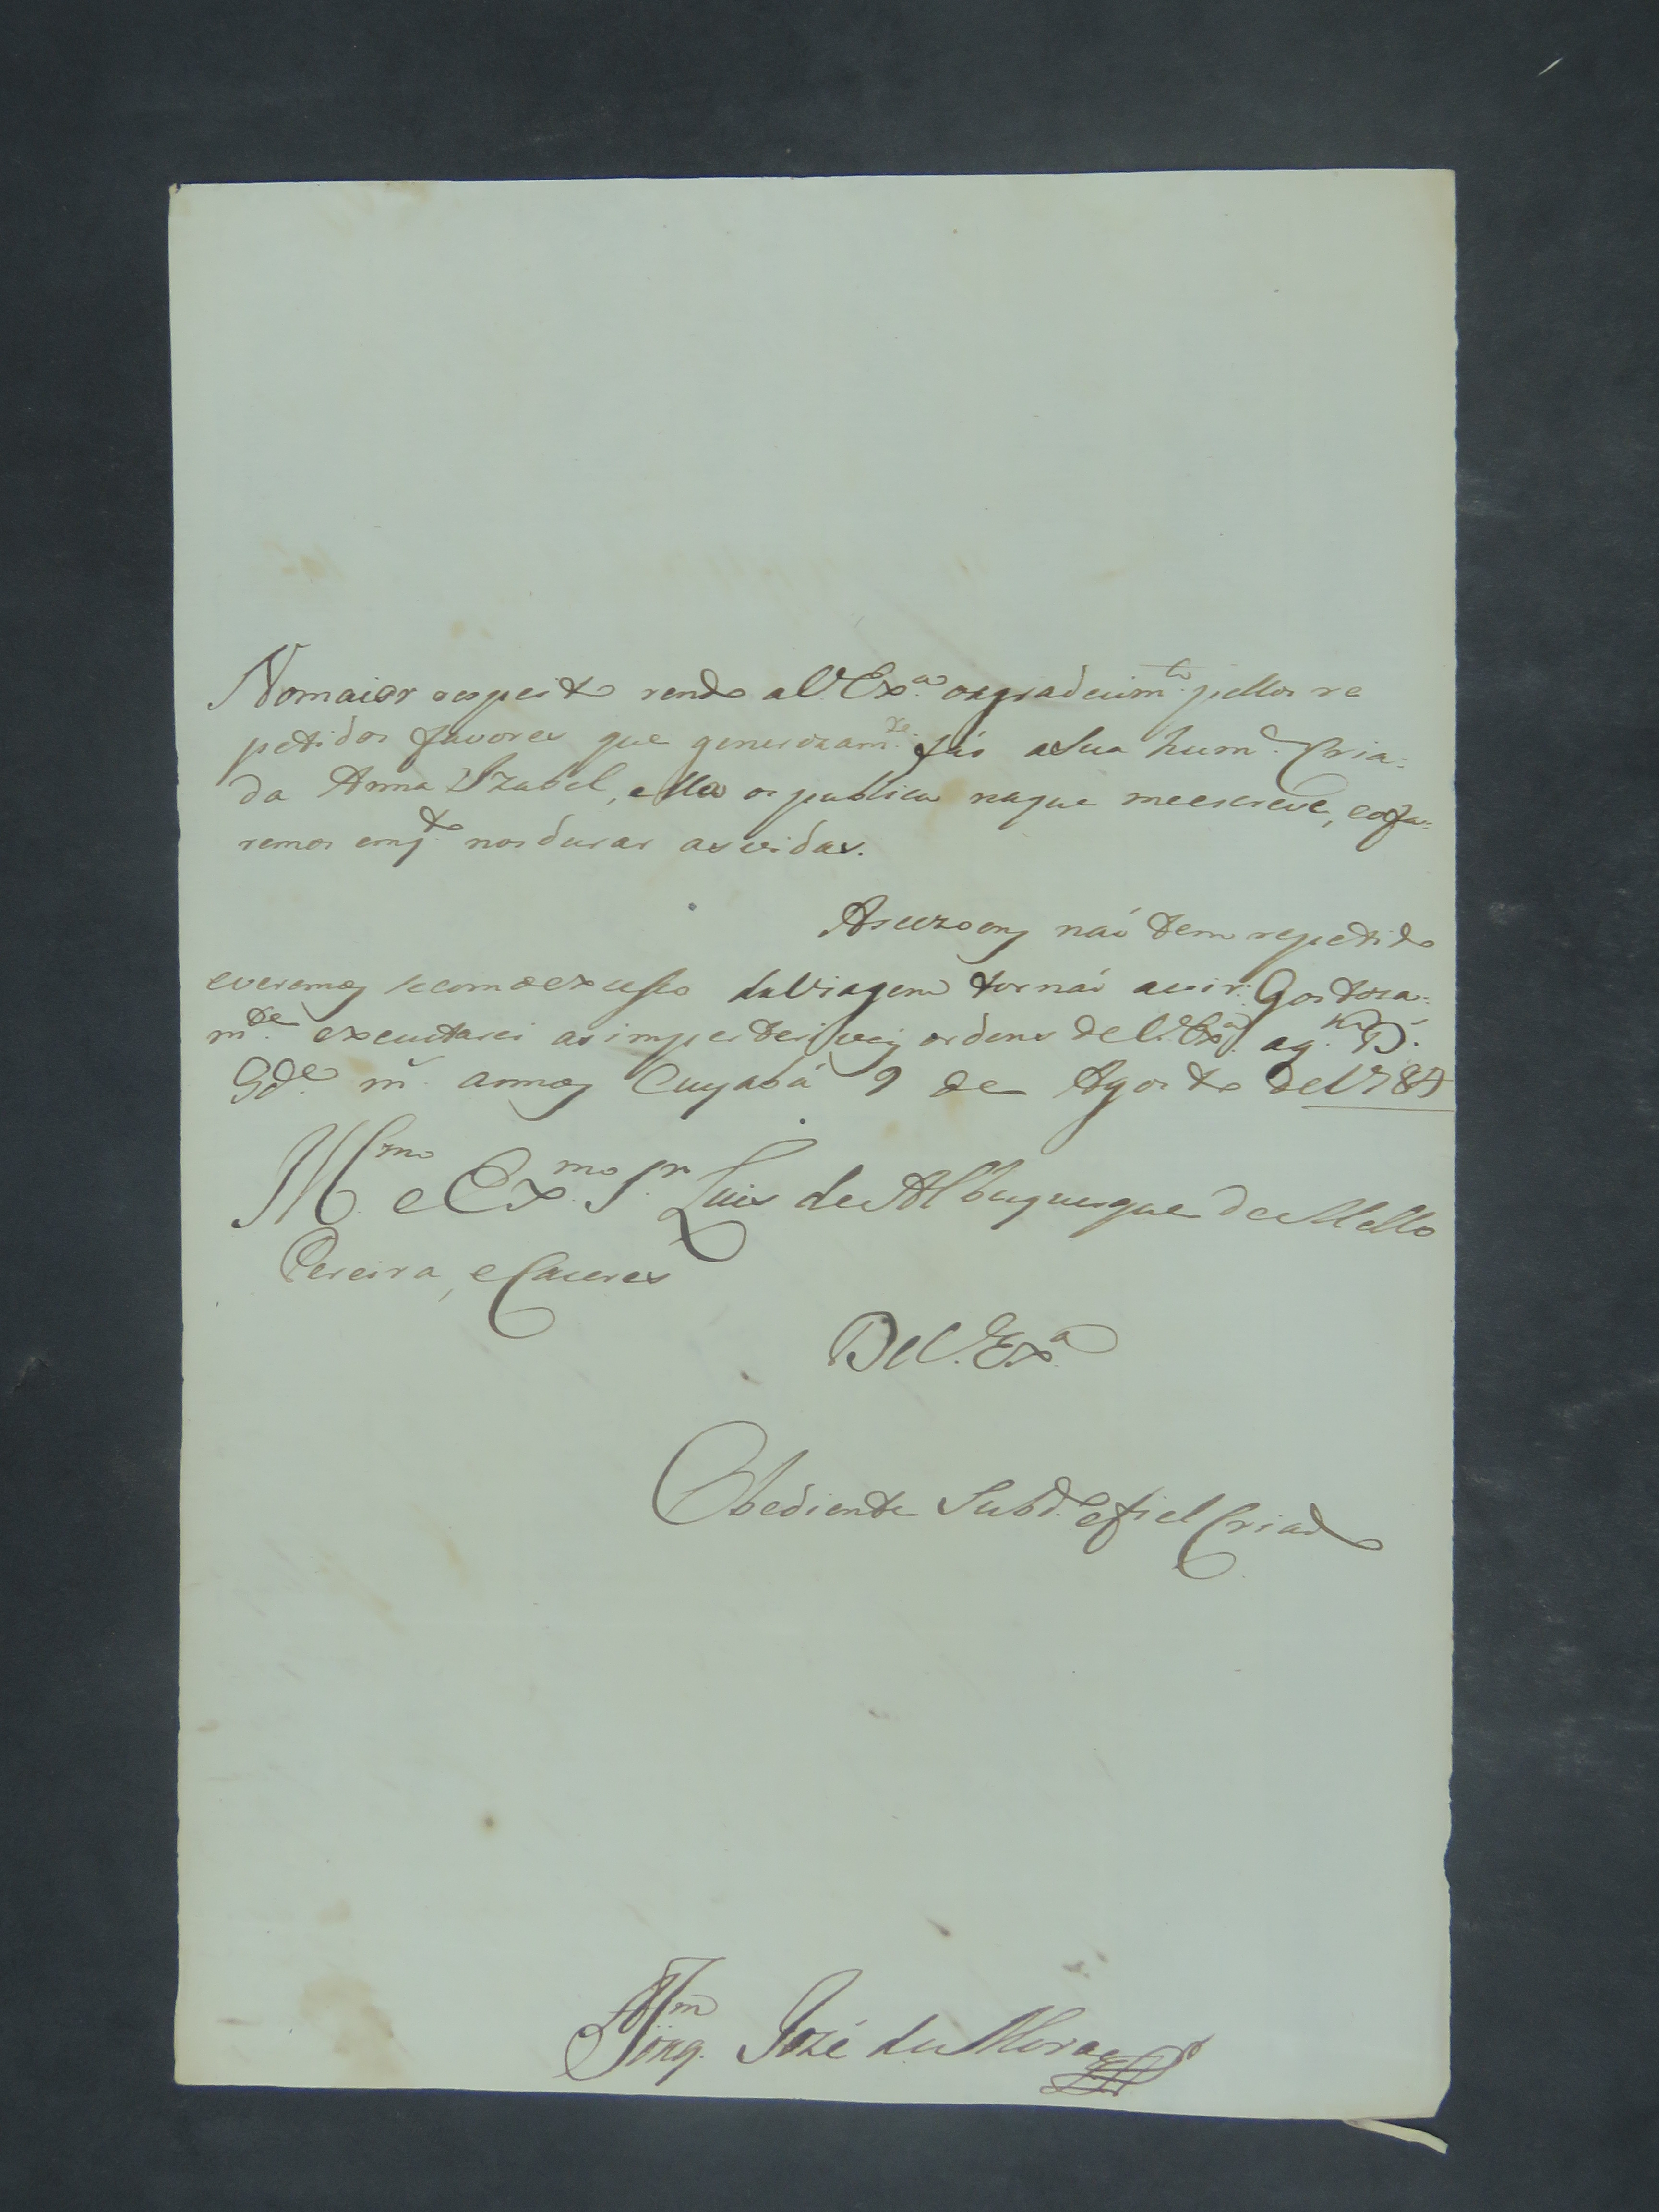 No maior respeito rendo a V. Ex.ª os agradecim.tos pellos re
petidos favores que generozam.te fás a Sua hum.e Cria:
da Anna Izabel, ella os publica na que me escreve, e os fa:
remos em q.to nos durar as vidas.
As cezoens naõ tem repetido
e veremos se com o excesso da Viagem tornaõ a vir. Gostoza:
m.te executarei as ordens de V. Ex.ª a q.m D.s
G.de m.s annos Cuyabá 9 de Agosto de 1784
Ill.mo e Ex.mo S.r Luis de Albuquerque de Mello
Pereira, e Caceres
De V. Ex.ª
Obediente Subd.º e fiel Criado
Joaq.m Jozé de Moraes